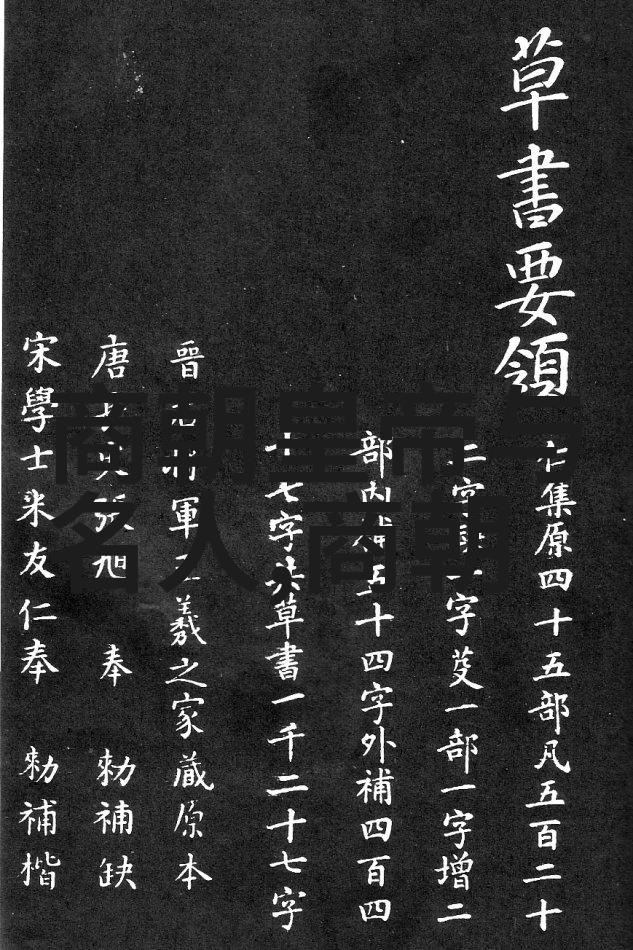 草書要領
仁集原四十五部凡五百二十
二字一字芟一部一字增二
部内補五十四字外補四百四
十七字共草書一千二十七字
晉右將軍王羲之家藏原本
唐長史張旭 奉 勅補缺
宋學士米友仁奉 勅補楷
商朝皇帝与
名人 商朝